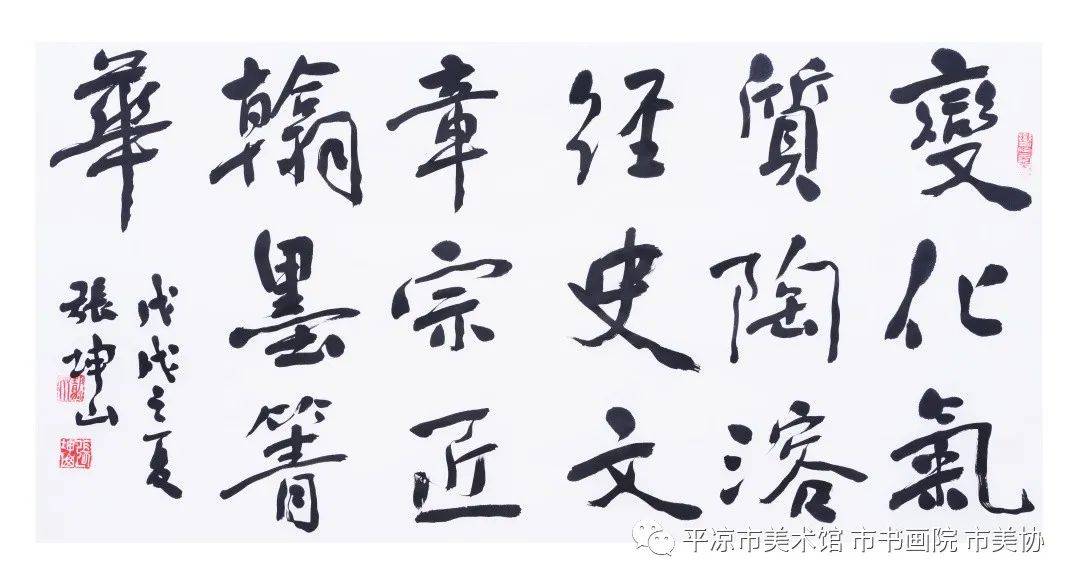 變化氣
質陶溶
經史文
章宗匠
翰墨箐
華
戊戌之夏
張坤山
平凉市美术馆 市书画院 市美协